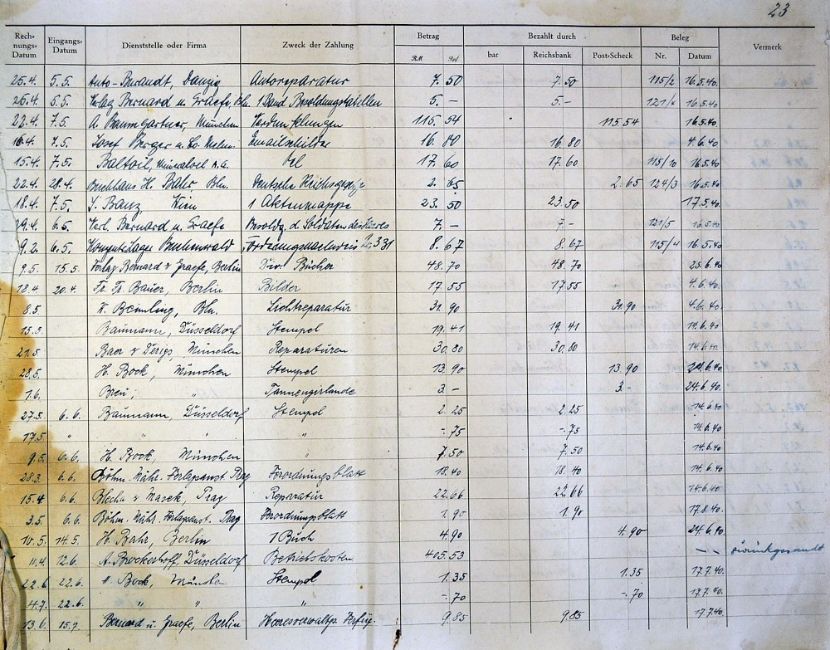 23
Rechnungs-Datum Eingangs-Datum Dienststelle oder Firma Zweck der Zahlung Betrag Bezahlt durch Beleg Vermerk
RM Rpf. bar Reichsbank Post-Scheck Nr. Datum
25.4. 5.5. Auto-Brandt, Danzig Autoreparatur 7.50 7.50 115/2 16.5.40.
26.4. 5.5. Verlag Bernard u. Graefe, Bln. 1 Band 5.- 5.- 16.5.40.
22.4. 7.5. A. Baumgartner, München 115.54 115.54 16.5.40.
16.4. 7.5. Josef Berger u. Emailschilder 16.80 16.80 4.6.40.
15.4. 7.5. Baltoil, Öl 17.60 17.60 115/10 16.5.40.
22.4. 28.4. H. Bln. Deutsche 2.65 2.65 124/3 16.5.40.
18.4. 7.5. Y. Banz, Wien 1 Aktenmappe 23.50 23.50 17.5.40
29.4. 6.5. Verl. Bernard u. Graefe d. Soldaten des Heeres 7.- 7.- 121/5 16.5.40
9.2. 6.5. Buchenwald 331 8.67 8.67 115/4 16.5.40.
9.5. 15.5. Verlag Bernard v. Graefe, Berlin Bücher 48.70 48.70 25.6.40
18.4 20.4. Fr. Fr. Bauer, Berlin Bilder 17.55 17.55 4.6.40.
8.5. Bln. Lichtreparatur 31.90 31.90 4.6.40.
15.5. Baumann, Düsseldorf Stempel 19.41 19.41 14.6.40
21.5. München Reparaturen 30.80 30.80 14.6.40
28.5. H. Bock, München Stempel 13.90 13.90 24.6.40
1.6. " Tannengirlande 3.- 3.- 24.6.40
27.5. 6.6. Baumann, Düsseldorf Stempel 2.25 2.25 14.6.40
17.5 " " " " -.75 -.75 14.6.40
9.5. 6.6. H. Bock, München " 7.50 7.50 14.6.40
28.3. 6.6. Böhm. Mähr. Verlagsanst. Prag Verordnungsblatt 18.40 18.40 14.6.40
15.4 6.6. Prag Reparatur 22.66 22.66 14.6.40
3.5. 6.6. Böhm. Mähr. Verlagsanst. Prag Verordnungsblatt 1.90 1.90 17.8.40
10.5. 14.5. H. Bahr, Berlin 1 Buch 4.90 4.90 24.6.40
11.4 12.6. A. Brockerhoff, Düsseldorf Betriebskosten 405.53 -- zurückgesandt
22.6 22.6. Bock, München Stempel 1.35 1.35 17.7.40.
4.7. 22.6. " " " -.70 -.70 17.7.40.
13.6. 15.7. Bernard u. Graefe, Berlin 9.85 9.85 17.7.40